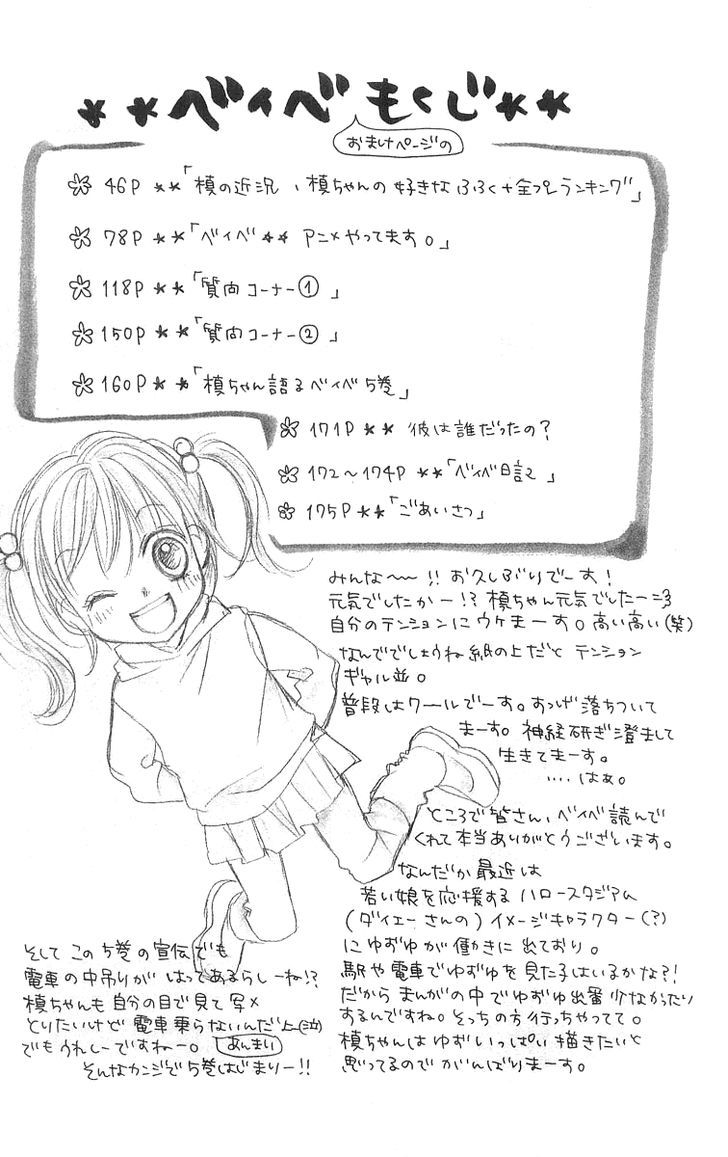 **ベイベもくじ**
おまけページの
46P **「槙の近況、槙ちゃんの好きなふく+全プレランキング」
78P **「ベイベ★★ アニメやってます。」
118P **「質問コーナー①」
150P **「質問コーナー②」
160P **「槙ちゃん語るベイベ5巻」
171P ** 彼は誰だったの?
172～174P **「ベイベ日記」
175P **「ごあいさつ」
みんな〜〜!! お久しぶりでーす!
元気でしたかー!? 槙ちゃん元気でしたー
自分のテンションにウケまーす。高い高い(笑)
なんででしょうね紙の上だと テンション
ギャル並。
普段はクールでーす。すっげ落ちついて
まーす。神経研ぎ澄まして
生きてまーす。
....はぁ。
ところで皆さん、ベイベ読んで
くれて本当ありがとうございます。
なんだか最近は
若い娘を応援する ハロースタジアム
(ダイエーさんの)イメージキャラクター(?)
にゆずゆが働きに出ており。
駅や電車でゆずゆを見た子はいるかな?!
だから まんがの中でゆずゆ出番少なかったり
するんですね。そっちの方行っちゃってて。
槙ちゃんは ゆずいっぱい 描きたいと
思ってるので がんばりまーす。
そして この5巻の宣伝でも
電車の中吊りが はってあるらしーね!?
槙ちゃんも 自分の目で見て 写メ
とりたいけど 電車 乗らないんだよ(泣)
でもうれしーですねー。 あんまり
そんなカンジで5巻はじまりー!!